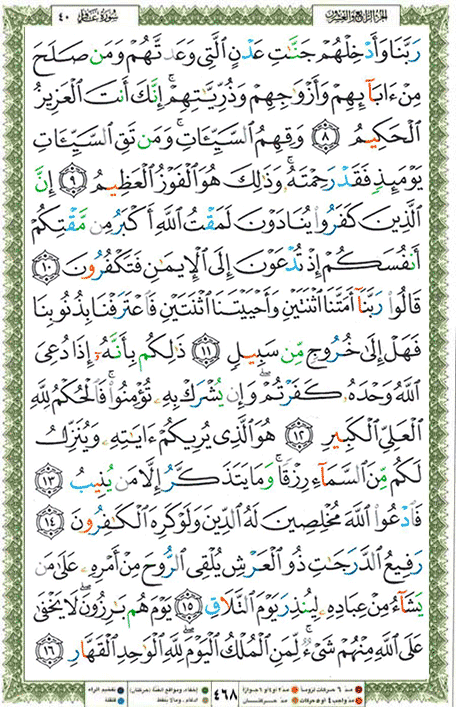 الجزء الرابع والعشرون
سورة غافر ٤٠
رَبَّنَا وَأَدْخِلْهُمْ جَنَّٰتِ عَدْنٍ ٱلَّتِى وَعَدتَّهُمْ وَمَن صَلَحَ
مِنْ ءَابَآئِهِمْ وَأَزْوَٰجِهِمْ وَذُرِّيَّٰتِهِمْ ۚ إِنَّكَ أَنتَ ٱلْعَزِيزُ
ٱلْحَكِيمُ ٨ وَقِهِمُ ٱلسَّيِّـَٔاتِ ۚ وَمَن تَقِ ٱلسَّيِّـَٔاتِ
يَوْمَئِذٍ فَقَدْ رَحِمْتَهُۥ ۚ وَذَٰلِكَ هُوَ ٱلْفَوْزُ ٱلْعَظِيمُ ٩ إِنَّ
ٱلَّذِينَ كَفَرُوا۟ يُنَادَوْنَ لَمَقْتُ ٱللَّهِ أَكْبَرُ مِن مَّقْتِكُمْ
أَنفُسَكُمْ إِذْ تُدْعَوْنَ إِلَى ٱلْإِيمَٰنِ فَتَكْفُرُونَ ١٠
قَالُوا۟ رَبَّنَآ أَمَتَّنَا ٱثْنَتَيْنِ وَأَحْيَيْتَنَا ٱثْنَتَيْنِ فَٱعْتَرَفْنَا بِذُنُوبِنَا
فَهَلْ إِلَىٰ خُرُوجٍ مِّن سَبِيلٍ ١١ ذَٰلِكُم بِأَنَّهُۥٓ إِذَا دُعِىَ
ٱللَّهُ وَحْدَهُۥ كَفَرْتُمْ ۖ وَإِن يُشْرَكْ بِهِۦ تُؤْمِنُوا۟ ۚ فَٱلْحُكْمُ لِلَّهِ
ٱلْعَلِىِّ ٱلْكَبِيرِ ١٢ هُوَ ٱلَّذِى يُرِيكُمْ ءَايَٰتِهِۦ وَيُنَزِّلُ
لَكُم مِّنَ ٱلسَّمَآءِ رِزْقًا ۚ وَمَا يَتَذَكَّرُ إِلَّا مَن يُنِيبُ ١٣
فَٱدْعُوا۟ ٱللَّهَ مُخْلِصِينَ لَهُ ٱلدِّينَ وَلَوْ كَرِهَ ٱلْكَٰفِرُونَ ١٤
رَفِيعُ ٱلدَّرَجَٰتِ ذُو ٱلْعَرْشِ يُلْقِى ٱلرُّوحَ مِنْ أَمْرِهِۦ عَلَىٰ مَن
يَشَآءُ مِنْ عِبَادِهِۦ لِيُنذِرَ يَوْمَ ٱلتَّلَاقِ ١٥ يَوْمَ هُم بَٰرِزُونَ ۖ لَا يَخْفَىٰ
عَلَى ٱللَّهِ مِنْهُمْ شَىْءٌ ۚ لِّمَنِ ٱلْمُلْكُ ٱلْيَوْمَ ۖ لِلَّهِ ٱلْوَٰحِدِ ٱلْقَهَّارِ ١٦
مدّ ٦ حركات لزوماً
مدّ ٢ أو ٤ أو ٦ جوازاً
مدّ واجب ٤ أو ٥ حركات
مدّ حركتان
٤٦٨
إخفاء، ومواقع الغنّة (حركتان)
إدغام، وما لا يلفظ
تفخيم الراء
قلقلة